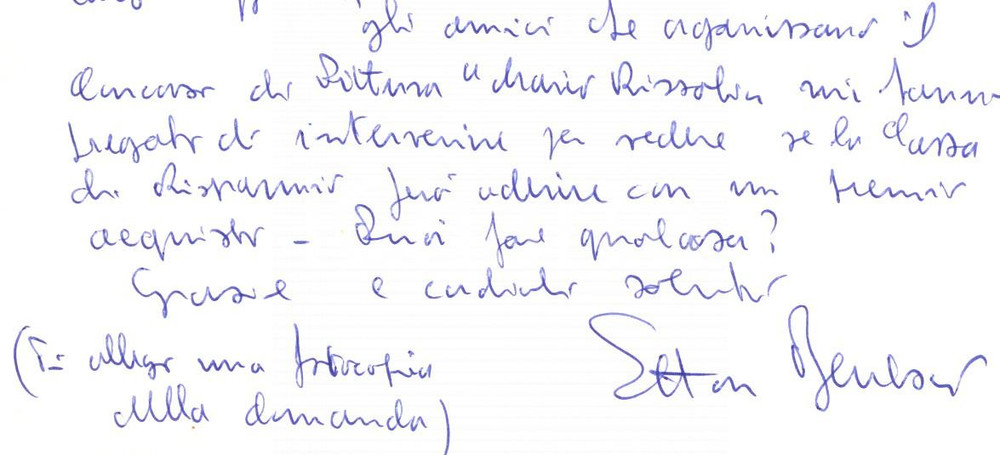 gli amici che organizzano il
Concorso di Pittura "Mario Rizzoli" mi hanno
pregato di intervenire per vedere se la Cassa
di Risparmio può aderire con un premio
acquisto - Puoi fare qualcosa?
Grazie e cordiali saluti
(Ti allego una fotocopia
della domanda)